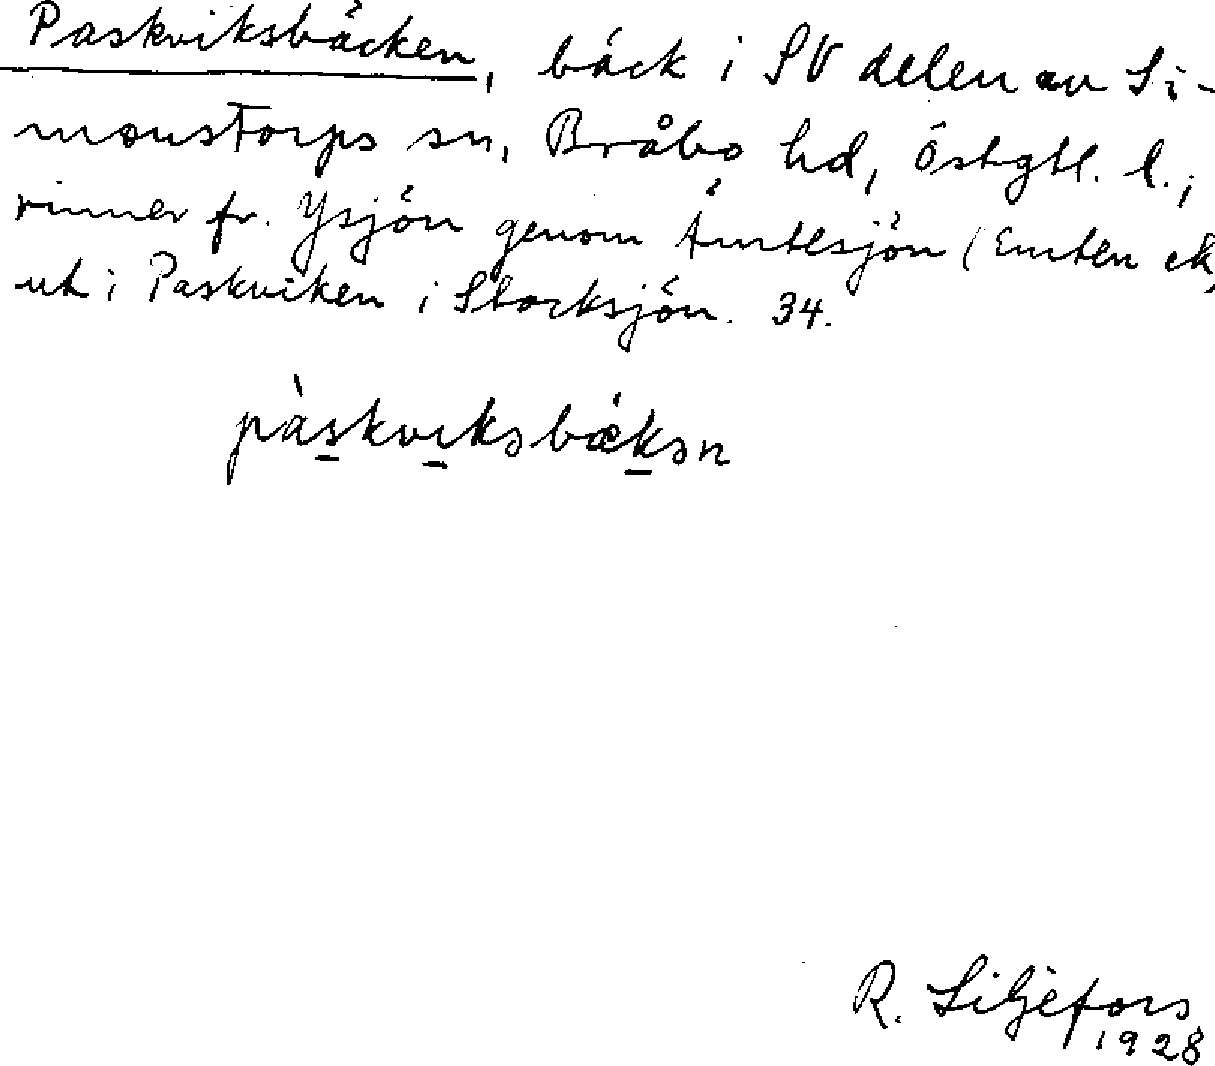 Paskviksbäcken, bäck i SV delen av Si-
monstorps sn, Bråbo hd, Östgtl. l.;
rinner fr. Ysjön genom Ämtesjön (Emten ek)
ut i Paskviken i Stocksjön. 34.
pàskviksbǽksn
R. Liljefors
1928